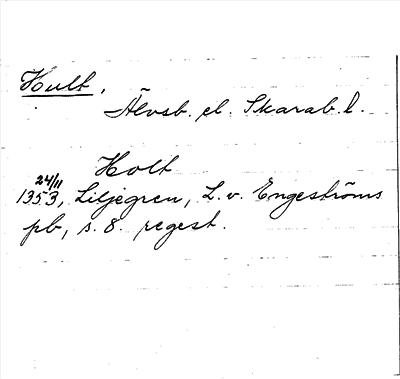 Hult.
Älvsb. el. Skarab. l.
Holt
24/11
1353, Liljegren, L. v. Engeströms
pb, s. 8. regest.